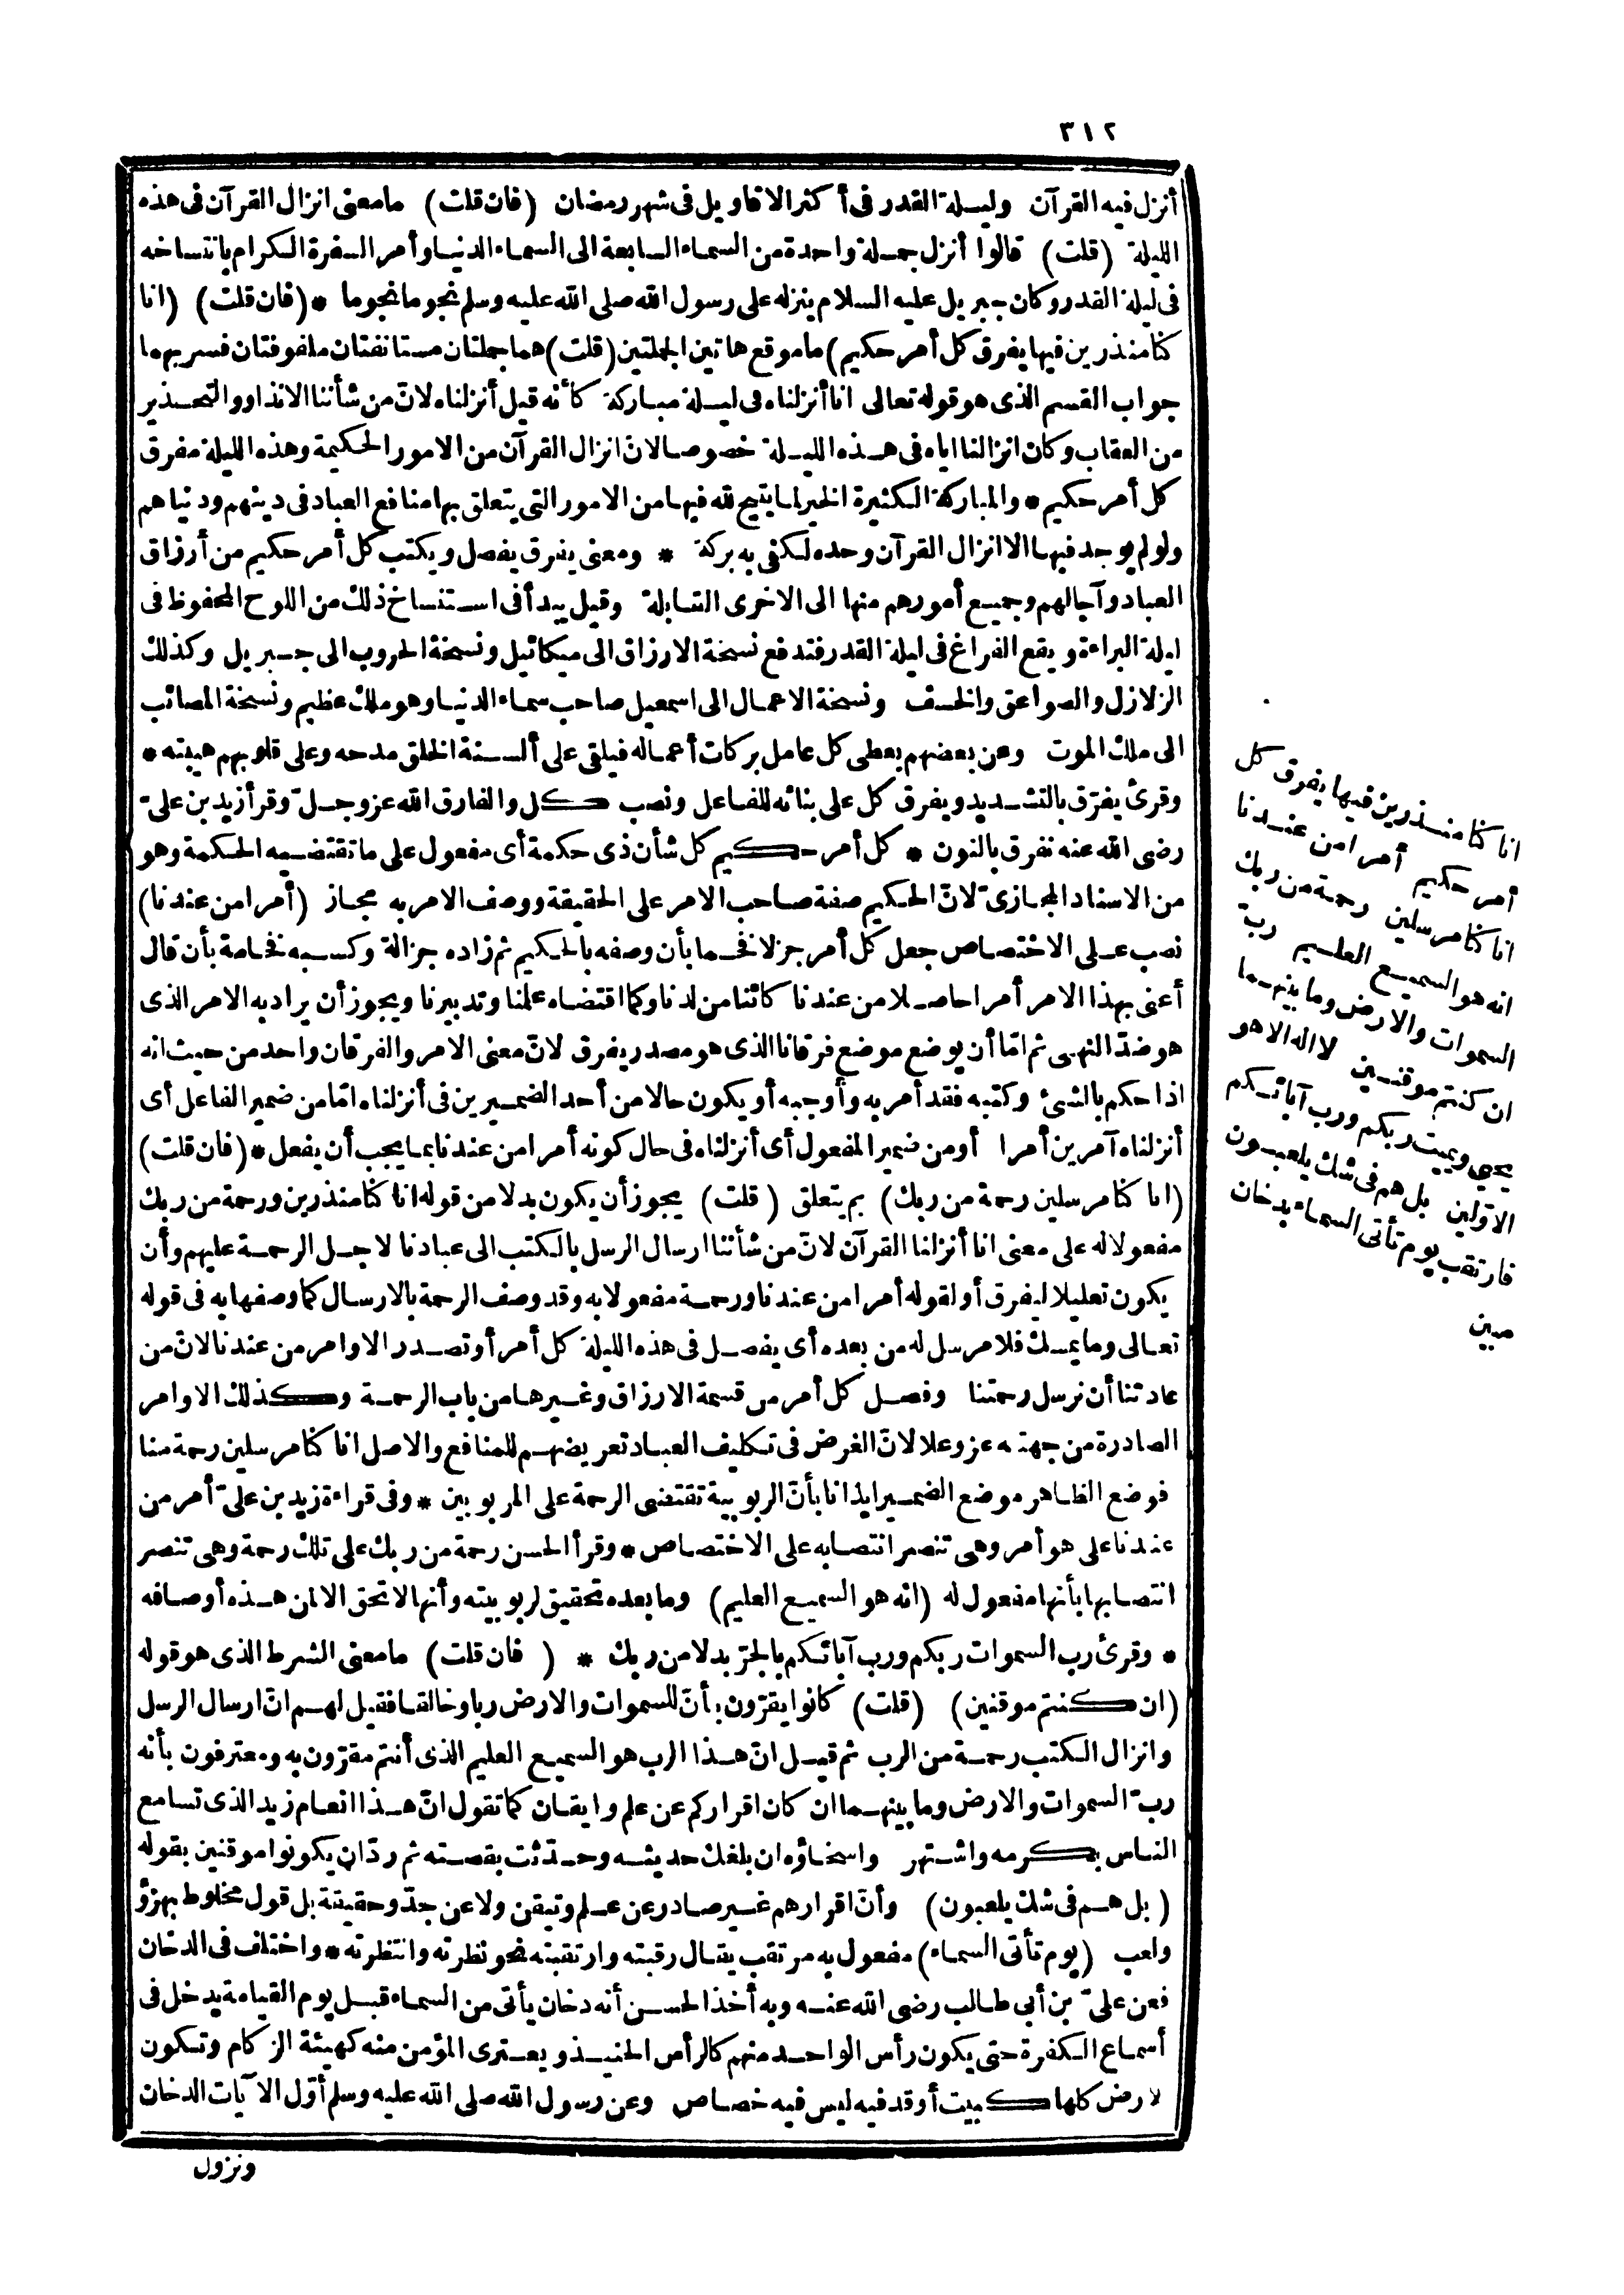 ٣١٢
أنزل فيه القرآن وليلة القدر فى أكثر الاقاويل فى شهر رمضان (فان قلت) ما معنى انزال القرآن فى هذه
الليلة (قلت) قالوا أنزل جملة واحدة من السماء السابعة الى السماء الدنيا وأمر السفرة الكرام بانتساخه
فى ليلة القدر وكان جبريل عليه السلام ينزله على رسول الله صلى الله عليه وسلم نجوما نجوما * (فان قلت) (انا
كنا منذرين فيها يفرق كل أمر حكيم) ما موقع هاتين الجملتين (قلت) هما جملتان مستأنفتان ملفوفتان فسر بهما
جواب القسم الذى هو قوله تعالى انا أنزلناه فى ليلة مباركة كأنه قيل أنزلناه لانّ من شأننا الانذار والتحذير
من العقاب وكان انزالنا اياه فى هذه الليلة خصوصا لانّ انزال القرآن من الامور الحكيمة وهذه الليلة مفرق
كل أمر حكيم * والمباركة الكثيرة الخير لما يتيح الله فيها من الامور التى يتعلق بها منافع العباد فى دينهم ودنياهم
ولو لم يوجد فيها الا انزال القرآن وحده لكفى به بركة * ومعنى يفرق يفصل ويكتب كل أمر حكيم من أرزاق
العباد وآجالهم وجميع أمورهم منها الى الاخرى القابلة وقيل يبدأ فى استنساخ ذلك من اللوح المحفوظ فى
ليلة البراءة ويقع الفراغ فى ليلة القدر فتدفع نسخة الارزاق الى ميكائيل ونسخة الحروب الى جبريل وكذلك
الزلازل والصواعق والخسف ونسخة الاعمال الى اسمعيل صاحب سماء الدنيا وهو ملك عظيم ونسخة المصائب
الى ملك الموت وعن بعضهم يعطى كل عامل بركات أعماله فيلقى على ألسنة الخلق مدحه وعلى قلوبهم هيبته *
وقرئ يفرّق بالتشديد ويفرق كل على بنائه للفاعل ونصب كل والفارق الله عز وجلّ وقرأ زيد بن علىّ
رضى الله عنه نفرق بالنون * كل أمر حكيم كل شأن ذى حكمة أى مفعول على ما تقتضيه الحكمة وهو
من الاسناد المجازىّ لانّ الحكيم صفة صاحب الامر على الحقيقة ووصف الامر به مجاز (أمرا من عندنا)
نصب على الاختصاص جعل كل أمر جزلا فخما بأن وصفه بالحكيم ثم زاده جزالة وكسبه فخامة بأن قال
أعنى بهذا الامر أمرا حاصلا من عندنا كائنا من لدنا وكما اقتضاه علمنا وتدبيرنا ويجوز أن يراد به الامر الذى
هو ضدّ النهى ثم امّا أن يوضع موضع فرقانا الذى هو مصدر يفرق لانّ معنى الامر والفرقان واحد من حيث انه
اذا حكم بالشئ وكتبه فقد أمر به وأوجبه أو يكون حالا من أحد الضميرين فى أنزلناه امّا من ضمير الفاعل أى
أنزلناه آمرين أمرا أو من ضمير المفعول أى أنزلناه فى حال كونه أمرا من عندنا بما يجب أن يفعل * (فان قلت)
(انا كنا مرسلين رحمة من ربك) بم يتعلق (قلت) يجوز أن يكون بدلا من قوله انا كنا منذرين ورحمة من ربك
مفعولا له على معنى انا أنزلنا القرآن لانّ من شأننا ارسال الرسل بالكتب الى عبادنا لاجل الرحمة عليهم وأن
يكون تعليلا ليفرق أو لقوله أمرا من عندنا ورحمة مفعولا به وقد وصف الرحمة بالارسال كما وصفها به فى قوله
تعالى وما يمسك فلا مرسل له من بعده أى يفصل فى هذه الليلة كل أمر أو تصدر الاوامر من عندنا لانّ من
عادتنا أن نرسل رحمتنا وفصل كل أمر من قسمة الارزاق وغيرها من باب الرحمة وكذلك الاوامر
الصادرة من جهته عز وعلا لانّ الغرض فى تكليف العباد تعريضهم للمنافع والاصل انا كنا مرسلين رحمة منا
فوضع الظاهر موضع الضمير ايذانا بأنّ الربوبية تقتضى الرحمة على المربوبين * وفى قراءة زيد بن علىّ أمر من
عندنا على هو أمر وهى تنصر انتصابه على الاختصاص * وقرأ الحسن رحمة من ربك على تلك رحمة وهى تنصر
انتصابها بأنها مفعول له (انه هو السميع العليم) وما بعده تحقيق لربوبيته وأنها لا تحق الا لمن هذه أوصافه
* وقرئ رب السموات ربكم ورب آبائكم بالجرّ بدلا من ربك * (فان قلت) ما معنى الشرط الذى هو قوله
(ان كنتم موقنين) (قلت) كانوا يقرّون بأنّ للسموات والارض ربا وخالقا فقيل لهم انّ ارسال الرسل
وانزال الكتب رحمة من الرب ثم قيل انّ هذا الرب هو السميع العليم الذى أنتم مقرّون به ومعترفون بأنه
ربّ السموات والارض وما بينهما ان كان اقراركم عن علم وايقان كما تقول انّ هذا انعام زيد الذى تسامع
الناس بكرمه واشتهر واسخاؤه ان بلغك حديثه وحدّثت بقصته ثم ردّ ان يكونوا موقنين بقوله
(بل هم فى شك يلعبون) وأنّ اقرارهم غير صادر عن علم وتيقن ولا عن جدّ وحقيقة بل قول مخلوط بهزؤ
ولعب (يوم تأتى السماء) مفعول به مرتقب يقال رقبته وارتقبته نحو نظرته وانتظرته * واختلف فى الدخان
فعن علىّ بن أبى طالب رضى الله عنه وبه أخذ الحسن أنه دخان يأتى من السماء قبل يوم القيامة يدخل فى
أسماع الكفرة حتى يكون رأس الواحد منهم كالرأس الحنيذ ويعترى المؤمن منه كهيئة الزكام وتكون
لارض كلها كبيت أوقد فيه ليس فيه خصاص وعن رسول الله صلى الله عليه وسلم أوّل الآيات الدخان
ونزول
انا كنا منذرين فيها يفرق كل
أمر حكيم أمرا من عندنا
انا كنا مرسلين رحمة من ربك
انه هو السميع العليم ربّ
السموات والارض وما بينهما
ان كنتم موقنين لا اله الا هو
يحيى ويميت ربكم ورب آبائكم
الاوّلين بل هم فى شك يلعبون
فارتقب يوم تأتى السماء بدخان
مبين